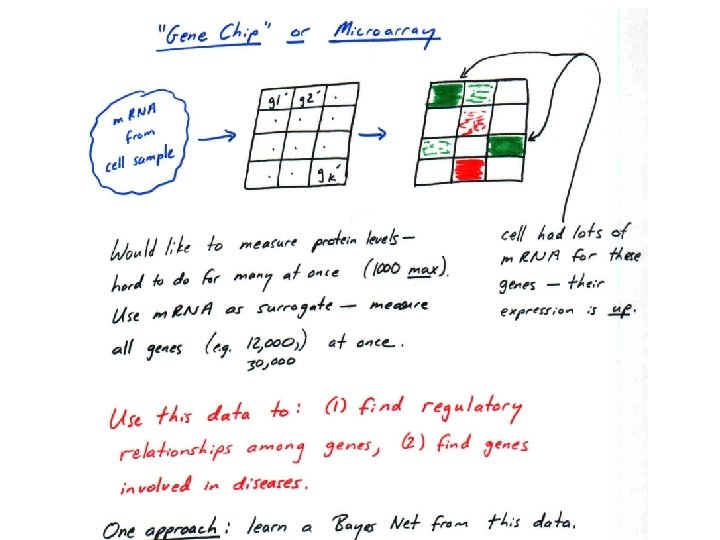 "Gene Chip" or Microarray
mRNA
from
cell sample
g1' g2' .
. . .
. . .
. . gk'
Would like to measure protein levels —
hard to do for many at once (1000 max).
Use mRNA as surrogate — measure
all genes (e.g. 12,000,) at once.
30,000
cell had lots of
mRNA for these
genes — their
expression is up.
Use this data to: (1) find regulatory
relationships among genes, (2) find genes
involved in diseases.
One approach: learn a Bayes Net from this data.